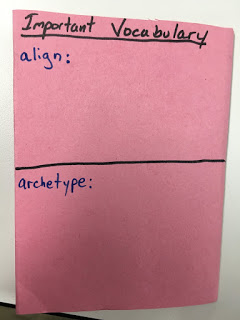 Important Vocabulary
align:
archetype: